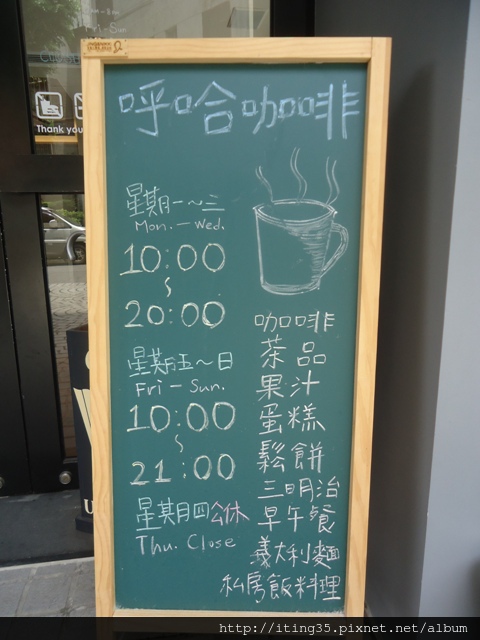 Thank you
呼哈咖啡
星期一～三
Mon. — Wed.
10:00
～
20:00
星期五～日
Fri — Sun.
10:00
～
21:00
星期四公休
Thu. Close
咖啡
茶品
果汁
蛋糕
鬆餅
三明治
早午餐
義大利麵
私房飯料理
http://iting35.pixnet.net/album